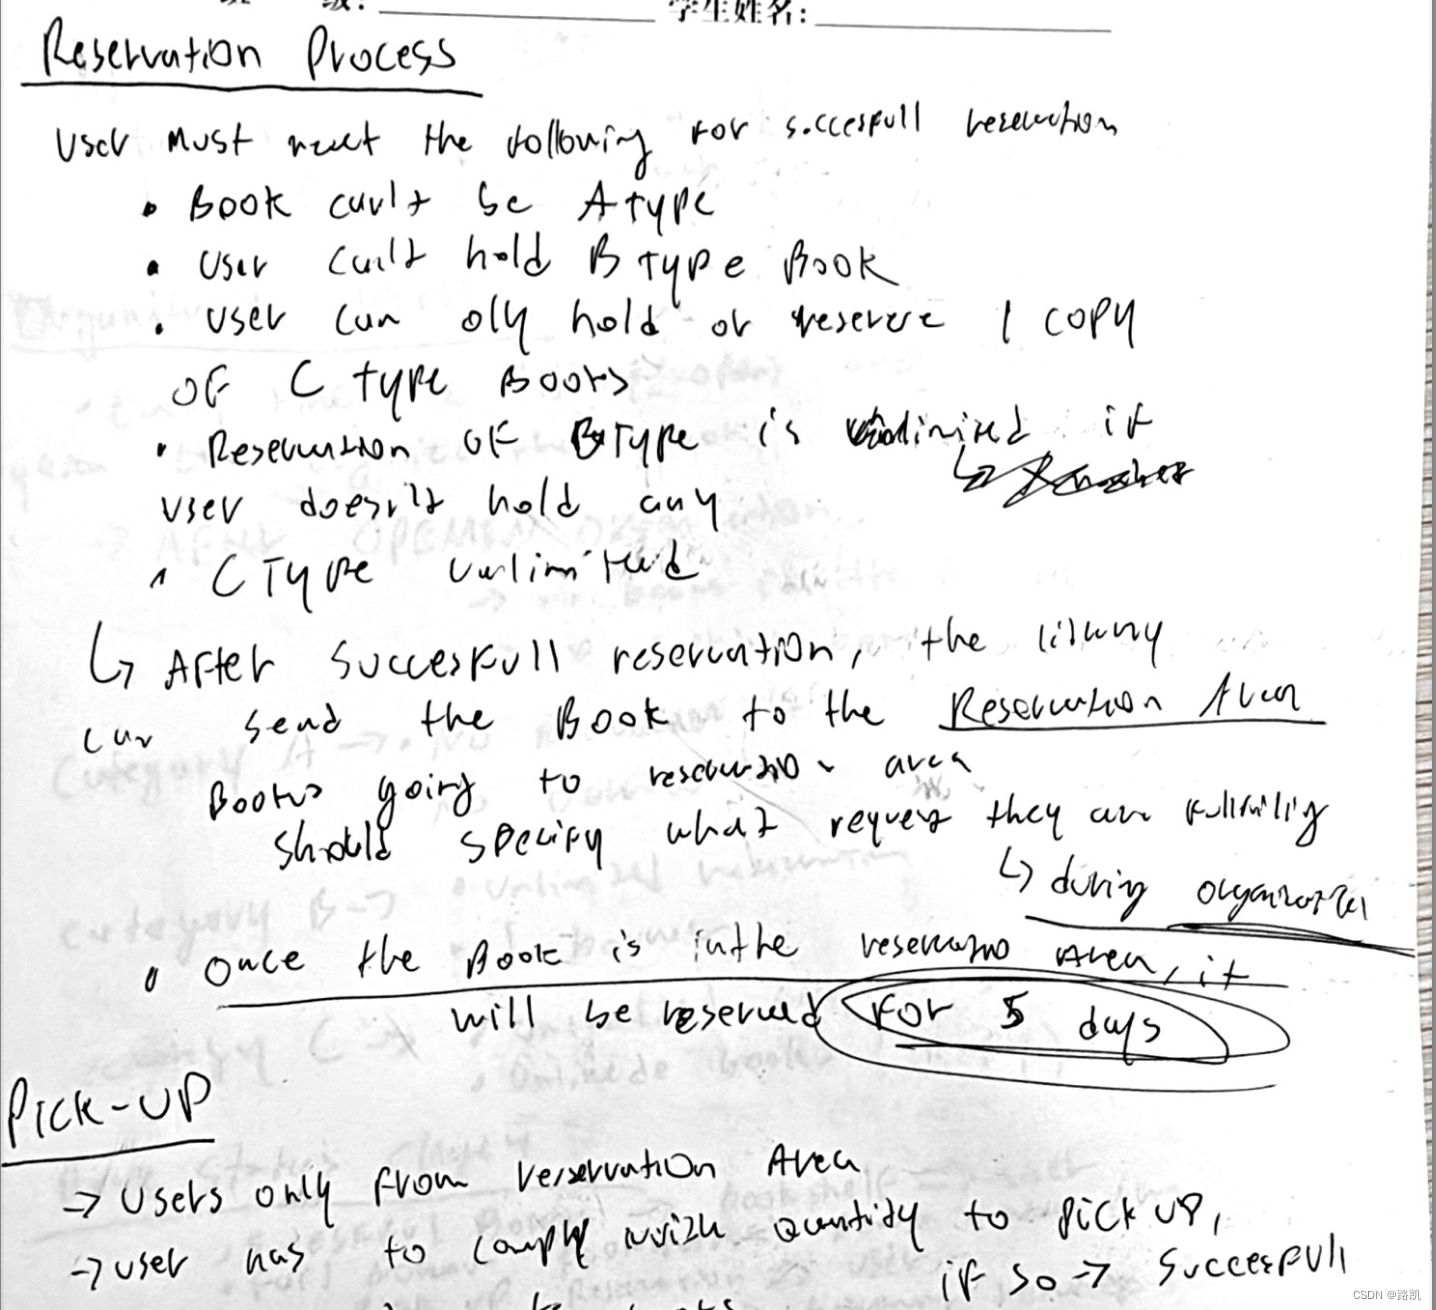 级: 学生姓名:
Reservation Process
User must meet the following for succesfull reservation
• Book can't be A type
• User can't hold B type Book
• User can olly hold or reserve 1 copy
of C type Books
• Reservation of B Type is unlimited if
user doesn't hold any
• C Type unlimited
↳ After Succesfull reservation, the library
can send the Book to the Reservation Area
Books going to reservation area
should specify what request they are fullfilling
↳ during organization
• Once the Book is in the reservation Area, it
will be reserved for 5 days
Pick-UP
→ Users only from reservation Area
→ user has to comply with quantity to pick up,
if so → Succesfull
CSDN @路凯